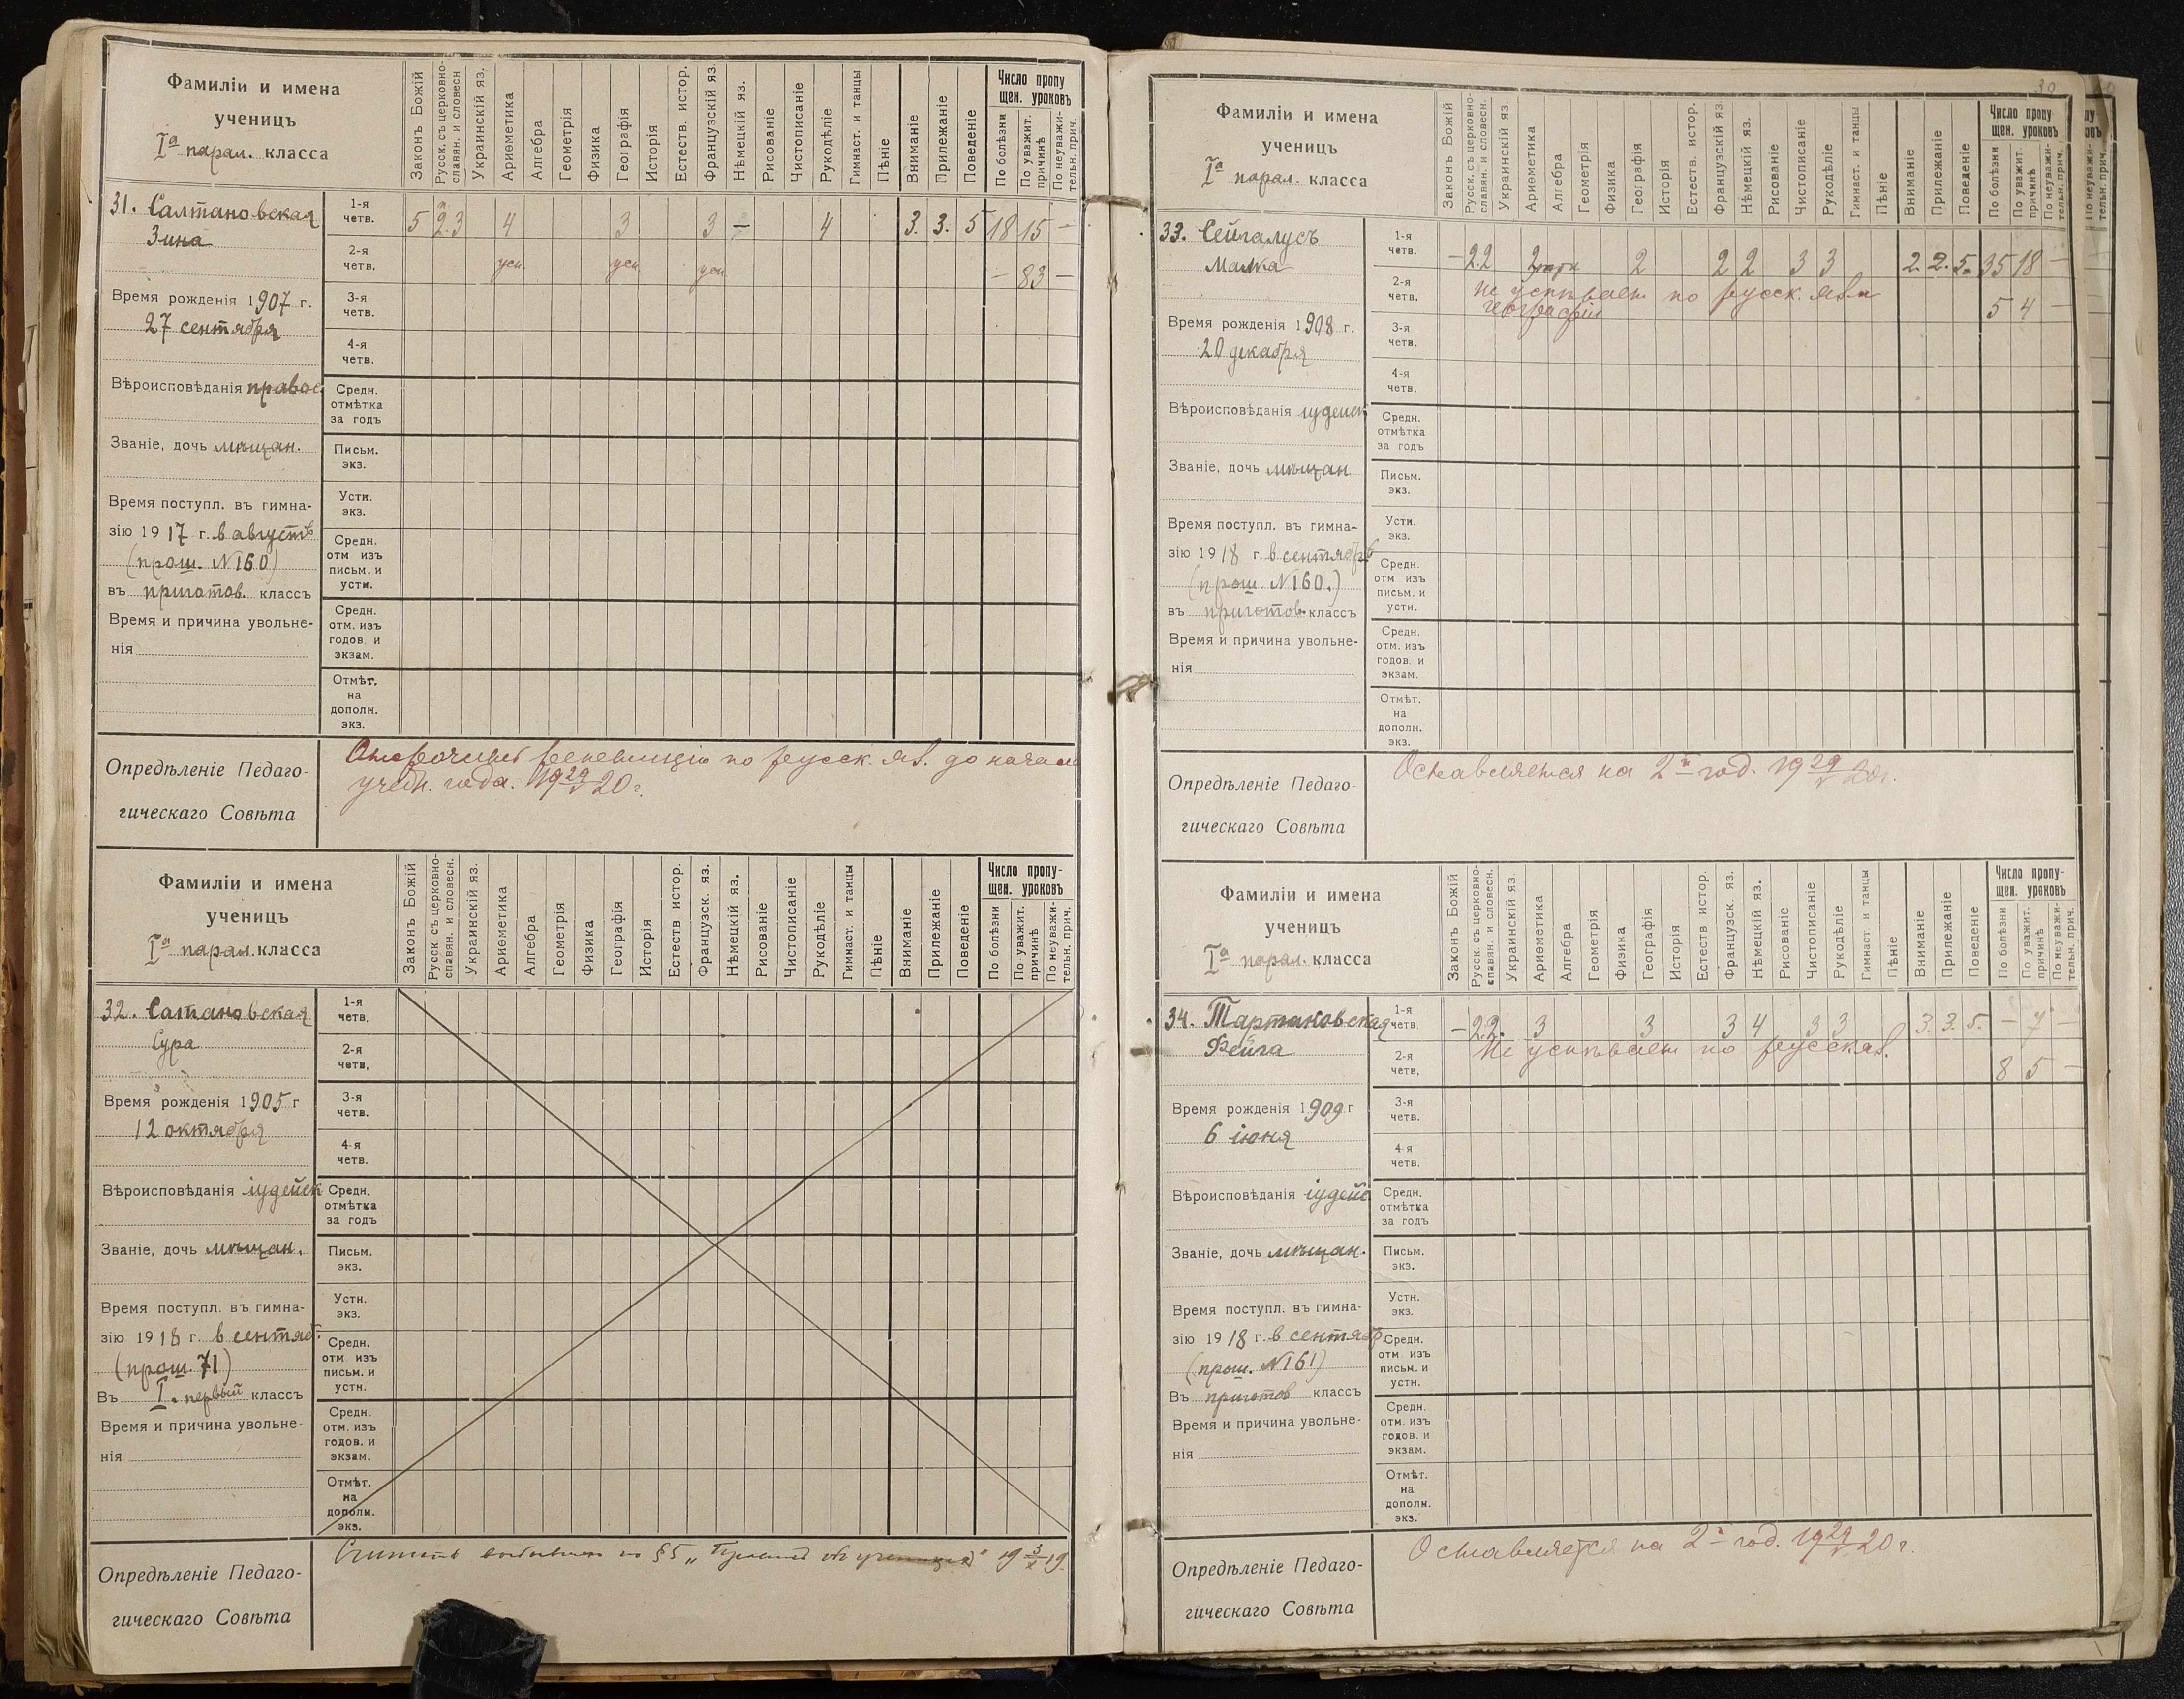 Фамиліи и имена
ученицъ
Iа парал. класса
Законъ Божій
Русск. съ церковно-
славян. и словесн
Украинскій яз.
Ариѳметика
Алгебра
Геометрія
Физика
Географія
Исторія
Естеств. истор.
Французскій яз.
Нѣмецкій яз.
Рисованіе
Чистописаніе
Рукодѣліе
Гимнаст. и танцы
Пѣніе
Вниманіе
Прилежаніе
Поведеніе
Число пропу
щен. уроковъ
По болѣзни
По уважит.
причинѣ
По неуважи-
тельн. прич.
31. Салтановская
Зина
Время рожденія 1907 г.
27 сентября
Вѣроисповѣданія правос
Званіе, дочь мѣщан.
Время поступл. въ гимна-
зію 1917 г. в августѣ
(прош. N160)
въ приготов. классъ
Время и причина увольне-
нія
1-я
четв.
5 2.3 4 3 3 – 4 3. 3. 5 18 15 –
2-я
четв.
усп. усп. усп. – 83 –
3-я
четв.
4-я
четв.
Средн.
отмѣтка
за годъ
Письм.
экз.
Устн.
экз.
Средн.
отм изъ
письм. и
устн.
Средн.
отм. изъ
годов. и
экзам.
Отмѣт.
на
дополн.
экз.
Опредѣленіе Педаго-
гическаго Совѣта
Отсрочить репетицію по русск. яз. до начала
учебн. года. 19 29/V 20 г.
Фамиліи и имена
ученицъ
Iа парал. класса
Законъ Божій
Русск. съ церковно-
славян. и словесн.
Украинскій яз.
Ариѳметика
Алгебра
Геометрія
Физика
Географія
Исторія
Естеств истор.
Французск. яз.
Нѣмецкій яз.
Рисованіе
Чистописаніе
Рукодѣліе
Гимнаст. и танцы
Пѣніе
Вниманіе
Прилежаніе
Поведеніе
Число пропу-
щен. уроковъ
По болѣзни
По уважит.
причинѣ
По неуважи-
тельн. прич.
32. Сатановская
Сура
Время рожденія 1905 г
12 октября
Вѣроисповѣданія іудейск
Званіе, дочь мѣщан.
Время поступл. въ гимна-
зію 1918 г. в сентяб.
(прош. 71)
Въ I. первый классъ
Время и причина увольне-
нія
1-я
четв.
2-я
четв.
3-я
четв.
4-я
четв.
Средн.
отмѣтка
за годъ
Письм.
экз.
Устн.
экз.
Средн.
отм изъ
письм. и
устн.
Средн.
отм. изъ
годов. и
экзам.
Отмѣт.
на
дополн.
экз.
Опредѣленіе Педаго-
гическаго Совѣта
Считать выбывшею по §5 „ 19 3/X 19.
30
Фамиліи и имена
ученицъ
Iа парал. класса
Законъ Божій
Русск. съ церковно-
славян. и словесн.
Украинскій яз.
Ариѳметика
Алгебра
Геометрія
Физика
Географія
Исторія
Естеств. истор.
Французскій яз.
Нѣмецкій яз.
Рисованіе
Чистописаніе
Рукодѣліе
Гимнаст. и танцы
Пѣніе
Вниманіе
Прилежаніе
Поведеніе
Число пропу
щен. уроковъ
По болѣзни
По уважит.
причинѣ
По неуважи-
тельн. прич.
33. Сейгалусъ
Малка
Время рожденія 1908 г.
20 декабря
Вѣроисповѣданія іудейск
Званіе, дочь мѣщан
Время поступл. въ гимна-
зію 1918 г. в сентябрѣ
(прош. N160.)
въ приготов. классъ
Время и причина увольне-
нія
1-я
четв.
– 2 2 2 2 2 2 3 3 2. 2. 5. 35 18 –
2-я
четв.
Не успѣвает по русск. яз. и
географіи
5 4 –
3-я
четв.
4-я
четв.
Средн.
отмѣтка
за годъ
Письм.
экз.
Устн.
экз.
Средн.
отм изъ
письм. и
устн.
Средн.
отм. изъ
годов. и
экзам.
Отмѣт.
на
дополн.
экз.
Опредѣленіе Педаго-
гическаго Совѣта
Оставляется на 2й год. 19 29/V 20 г.
Фамиліи и имена
ученицъ
Iа парал. класса
Законъ Божій
Русск. съ церковно-
славян. и словесн.
Украинскій яз.
Ариѳметика
Алгебра
Геометрія
Физика
Географія
Исторія
Естеств истор.
Французск. яз.
Нѣмецкій яз.
Рисованіе
Чистописаніе
Рукодѣліе
Гимнаст. и танцы
Пѣніе
Вниманіе
Прилежаніе
Поведеніе
Число пропу-
щен. уроковъ
По болѣзни
По уважит.
причинѣ
По неуважи-
тельн. прич.
34. Тартаковская
Фейга
Время рожденія 1909 г
6 іюня
Вѣроисповѣданія іудейс
Званіе, дочь мѣщан.
Время поступл. въ гимна-
зію 1918 г. в сентябр.
(прош. N161)
Въ приготов классъ
Время и причина увольне-
нія
1-я
четв.
– 2 2. 3 3 3 4 3 3 3. 3. 5. – 7 –
2-я
четв.
Не успѣвает по русск яз.
8 5 –
3-я
четв.
4-я
четв.
Средн.
отмѣтка
за годъ
Письм.
экз.
Устн.
экз.
Средн.
отм изъ
письм. и
устн.
Средн.
отм. изъ
годов. и
экзам.
Отмѣт.
на
дополн.
экз.
Опредѣленіе Педаго-
гическаго Совѣта
Оставляется на 2й год. 19 29/V 20 г.